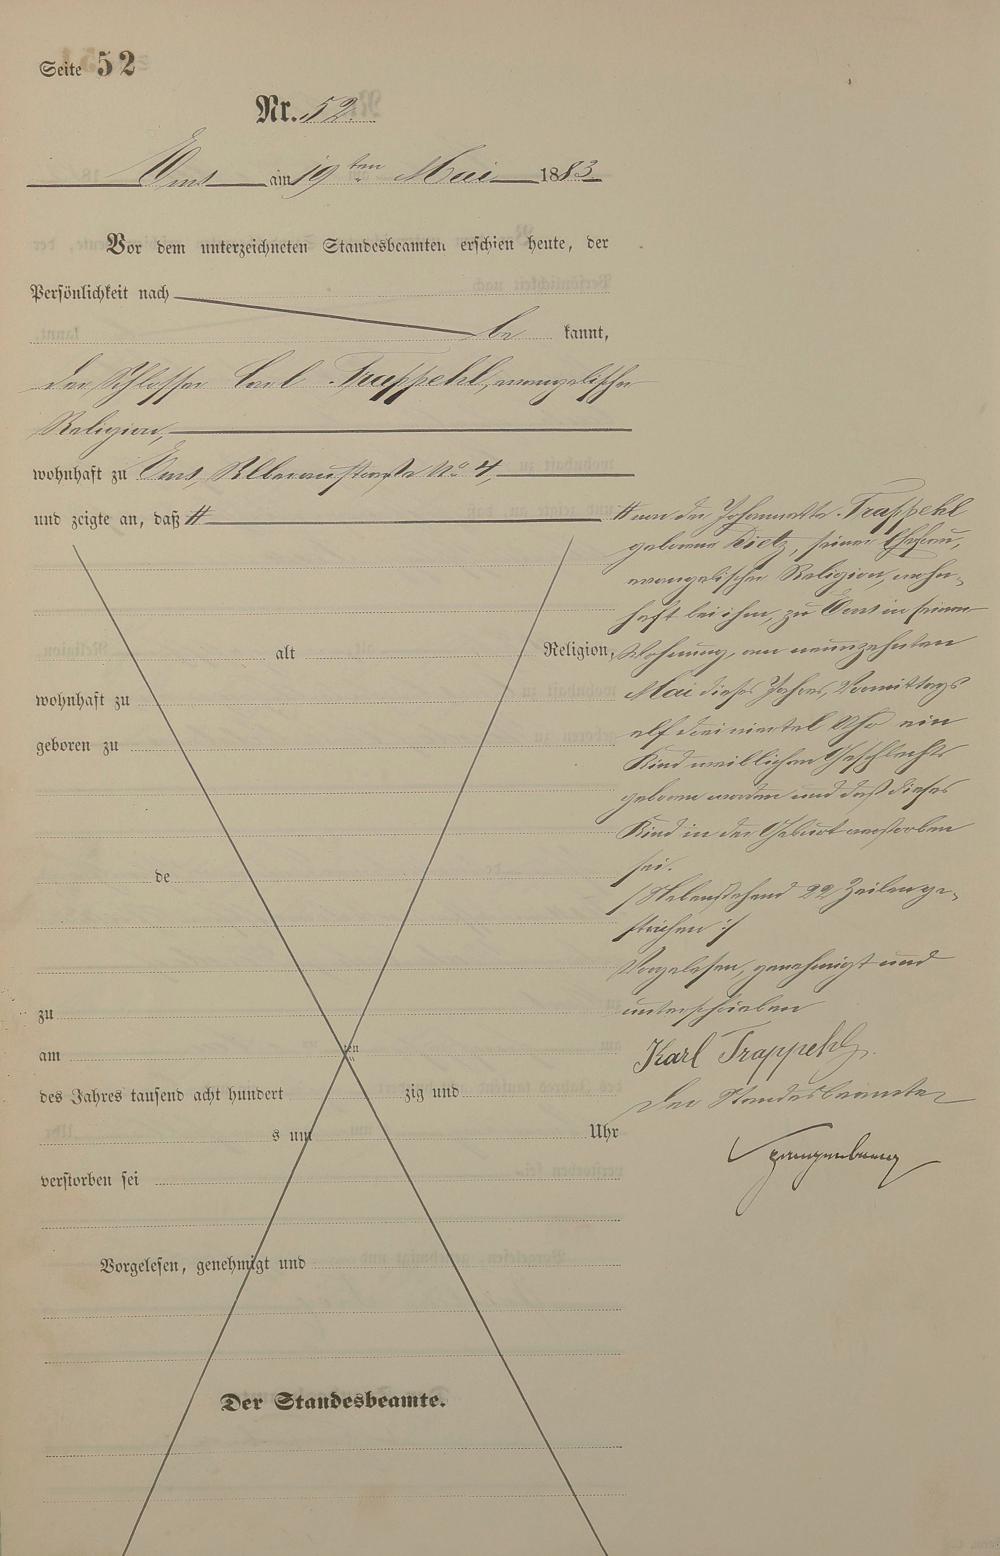 Seite 52
Nr. 52.
Ems am 19ten Mai 1883
Vor dem unterzeichneten Standesbeamten erschien heute, der
Persönlichkeit nach
be kannt,
der Schlosser Carl Trappehl, evangelischer
Religion,
wohnhaft zu Ems, No 4,
und zeigte an, daß #
# von der Johannette Trappehl
geborene Dietz, seiner Ehefrau,
evangelischer Religion, wohn-
haft bei ihm, zu Ems in seiner
Wohnung, am neunzehnten
Mai dieses Jahres, Vormittags
elf dreiviertel Uhr ein
Kind weiblichen Geschlechts
geboren worden und daß dieses
Kind in der Geburt verstorben
sei.
/: Nebenstehend 22 Zeilen ge-
strichen :/
Vorgelesen, genehmigt und
unterschrieben
Karl Trappehl.
Der Standesbeamte
alt Religion,
wohnhaft zu
geboren zu
de
zu
am ten
des Jahres tausend acht hundert zig und
s um Uhr
verstorben sei
Vorgelesen, genehmigt und
Der Standesbeamte.